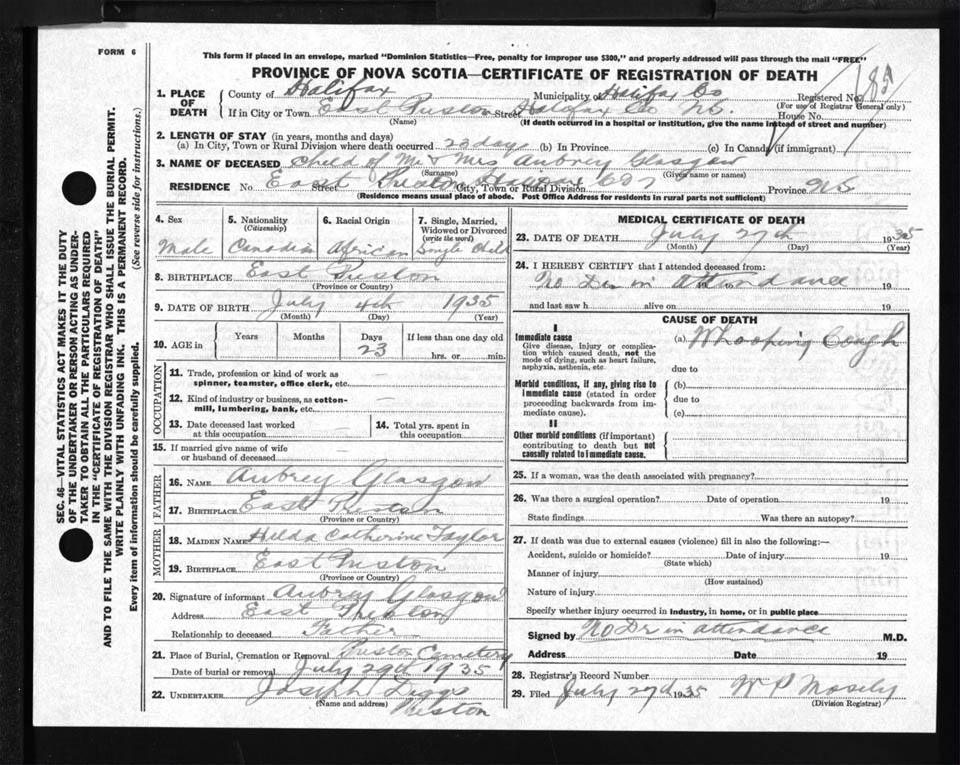 FORM 6
This form if placed in an envelope, marked "Dominion Statistics—Free, penalty for improper use $300," and properly addressed will pass through the mail "FREE"
PROVINCE OF NOVA SCOTIA—CERTIFICATE OF REGISTRATION OF DEATH
1. PLACE OF DEATH County of Halifax Municipality of Halifax Co Registered No.
(For use of Registrar General only)
If in City or Town East Preston Street Halifax Co N.S. House No.
(Name) (If death occurred in a hospital or institution, give the name instead of street and number)
2. LENGTH OF STAY (in years, months and days)
(a) In City, Town or Rural Division where death occurred 23 days (b) In Province (c) In Canada (if immigrant)
3. NAME OF DECEASED Child of Mr & Mrs Aubrey Glasgow
(Surname) (Given name or names)
RESIDENCE No. East Preston Street City, Town or Rural Division Province N S
(Residence means usual place of abode. Post Office Address for residents in rural parts not sufficient)
4. Sex Male
5. Nationality (Citizenship) Canadian
6. Racial Origin African
7. Single, Married, Widowed or Divorced (write the word) Single Child
8. BIRTHPLACE East Preston
(Province or Country)
9. DATE OF BIRTH July 4th 1935
(Month) (Day) (Year)
10. AGE in Years Months Days 23 If less than one day old hrs. or min.
OCCUPATION
11. Trade, profession or kind of work as spinner, teamster, office clerk, etc.
12. Kind of industry or business, as cotton-mill, lumbering, bank, etc.
13. Date deceased last worked at this occupation
14. Total yrs. spent in this occupation
15. If married give name of wife or husband of deceased
FATHER
16. NAME Aubrey Glasgow
17. BIRTHPLACE East Preston
(Province or Country)
MOTHER
18. MAIDEN NAME Hilda Catherine Taylor
19. BIRTHPLACE East Preston
(Province or Country)
20. Signature of informant Aubrey Glasgow
Address East Preston
Relationship to deceased Father
21. Place of Burial, Cremation or Removal Preston Cemetery
Date of burial or removal July 29th 1935
22. UNDERTAKER Joseph Diggs
(Name and address) Preston
MEDICAL CERTIFICATE OF DEATH
23. DATE OF DEATH July 27th 1935
(Month) (Day) (Year)
24. I HEREBY CERTIFY that I attended deceased from:
No Dr in attendance 19
and last saw h alive on 19
CAUSE OF DEATH
I
Immediate cause
Give disease, injury or complication which caused death, not the mode of dying, such as heart failure, asphyxia, asthenia, etc.
(a) Whooping Cough
due to
Morbid conditions, if any, giving rise to immediate cause (stated in order proceeding backwards from immediate cause).
(b)
due to
(c)
II
Other morbid conditions (if important) contributing to death but not causally related to immediate cause.
25. If a woman, was the death associated with pregnancy?
26. Was there a surgical operation? Date of operation 19
State findings Was there an autopsy?
27. If death was due to external causes (violence) fill in also the following:—
Accident, suicide or homicide? Date of injury 19
(State which)
Manner of injury
(How sustained)
Nature of injury
Specify whether injury occurred in industry, in home, or in public place
Signed by No Dr in attendance M.D.
Address Date 19
28. Registrar's Record Number
29. Filed July 27th 1935 W P Mosely
(Division Registrar)
SEC. 46—VITAL STATISTICS ACT MAKES IT THE DUTY
OF THE UNDERTAKER OR PERSON ACTING AS UNDER-
TAKER TO OBTAIN ALL THE PARTICULARS REQUIRED
IN THE "CERTIFICATE OF REGISTRATION OF DEATH"
AND TO FILE THE SAME WITH THE DIVISION REGISTRAR WHO SHALL ISSUE THE BURIAL PERMIT.
WRITE PLAINLY WITH UNFADING INK. THIS IS A PERMANENT RECORD.
Every item of information should be carefully supplied. (See reverse side for instructions.)